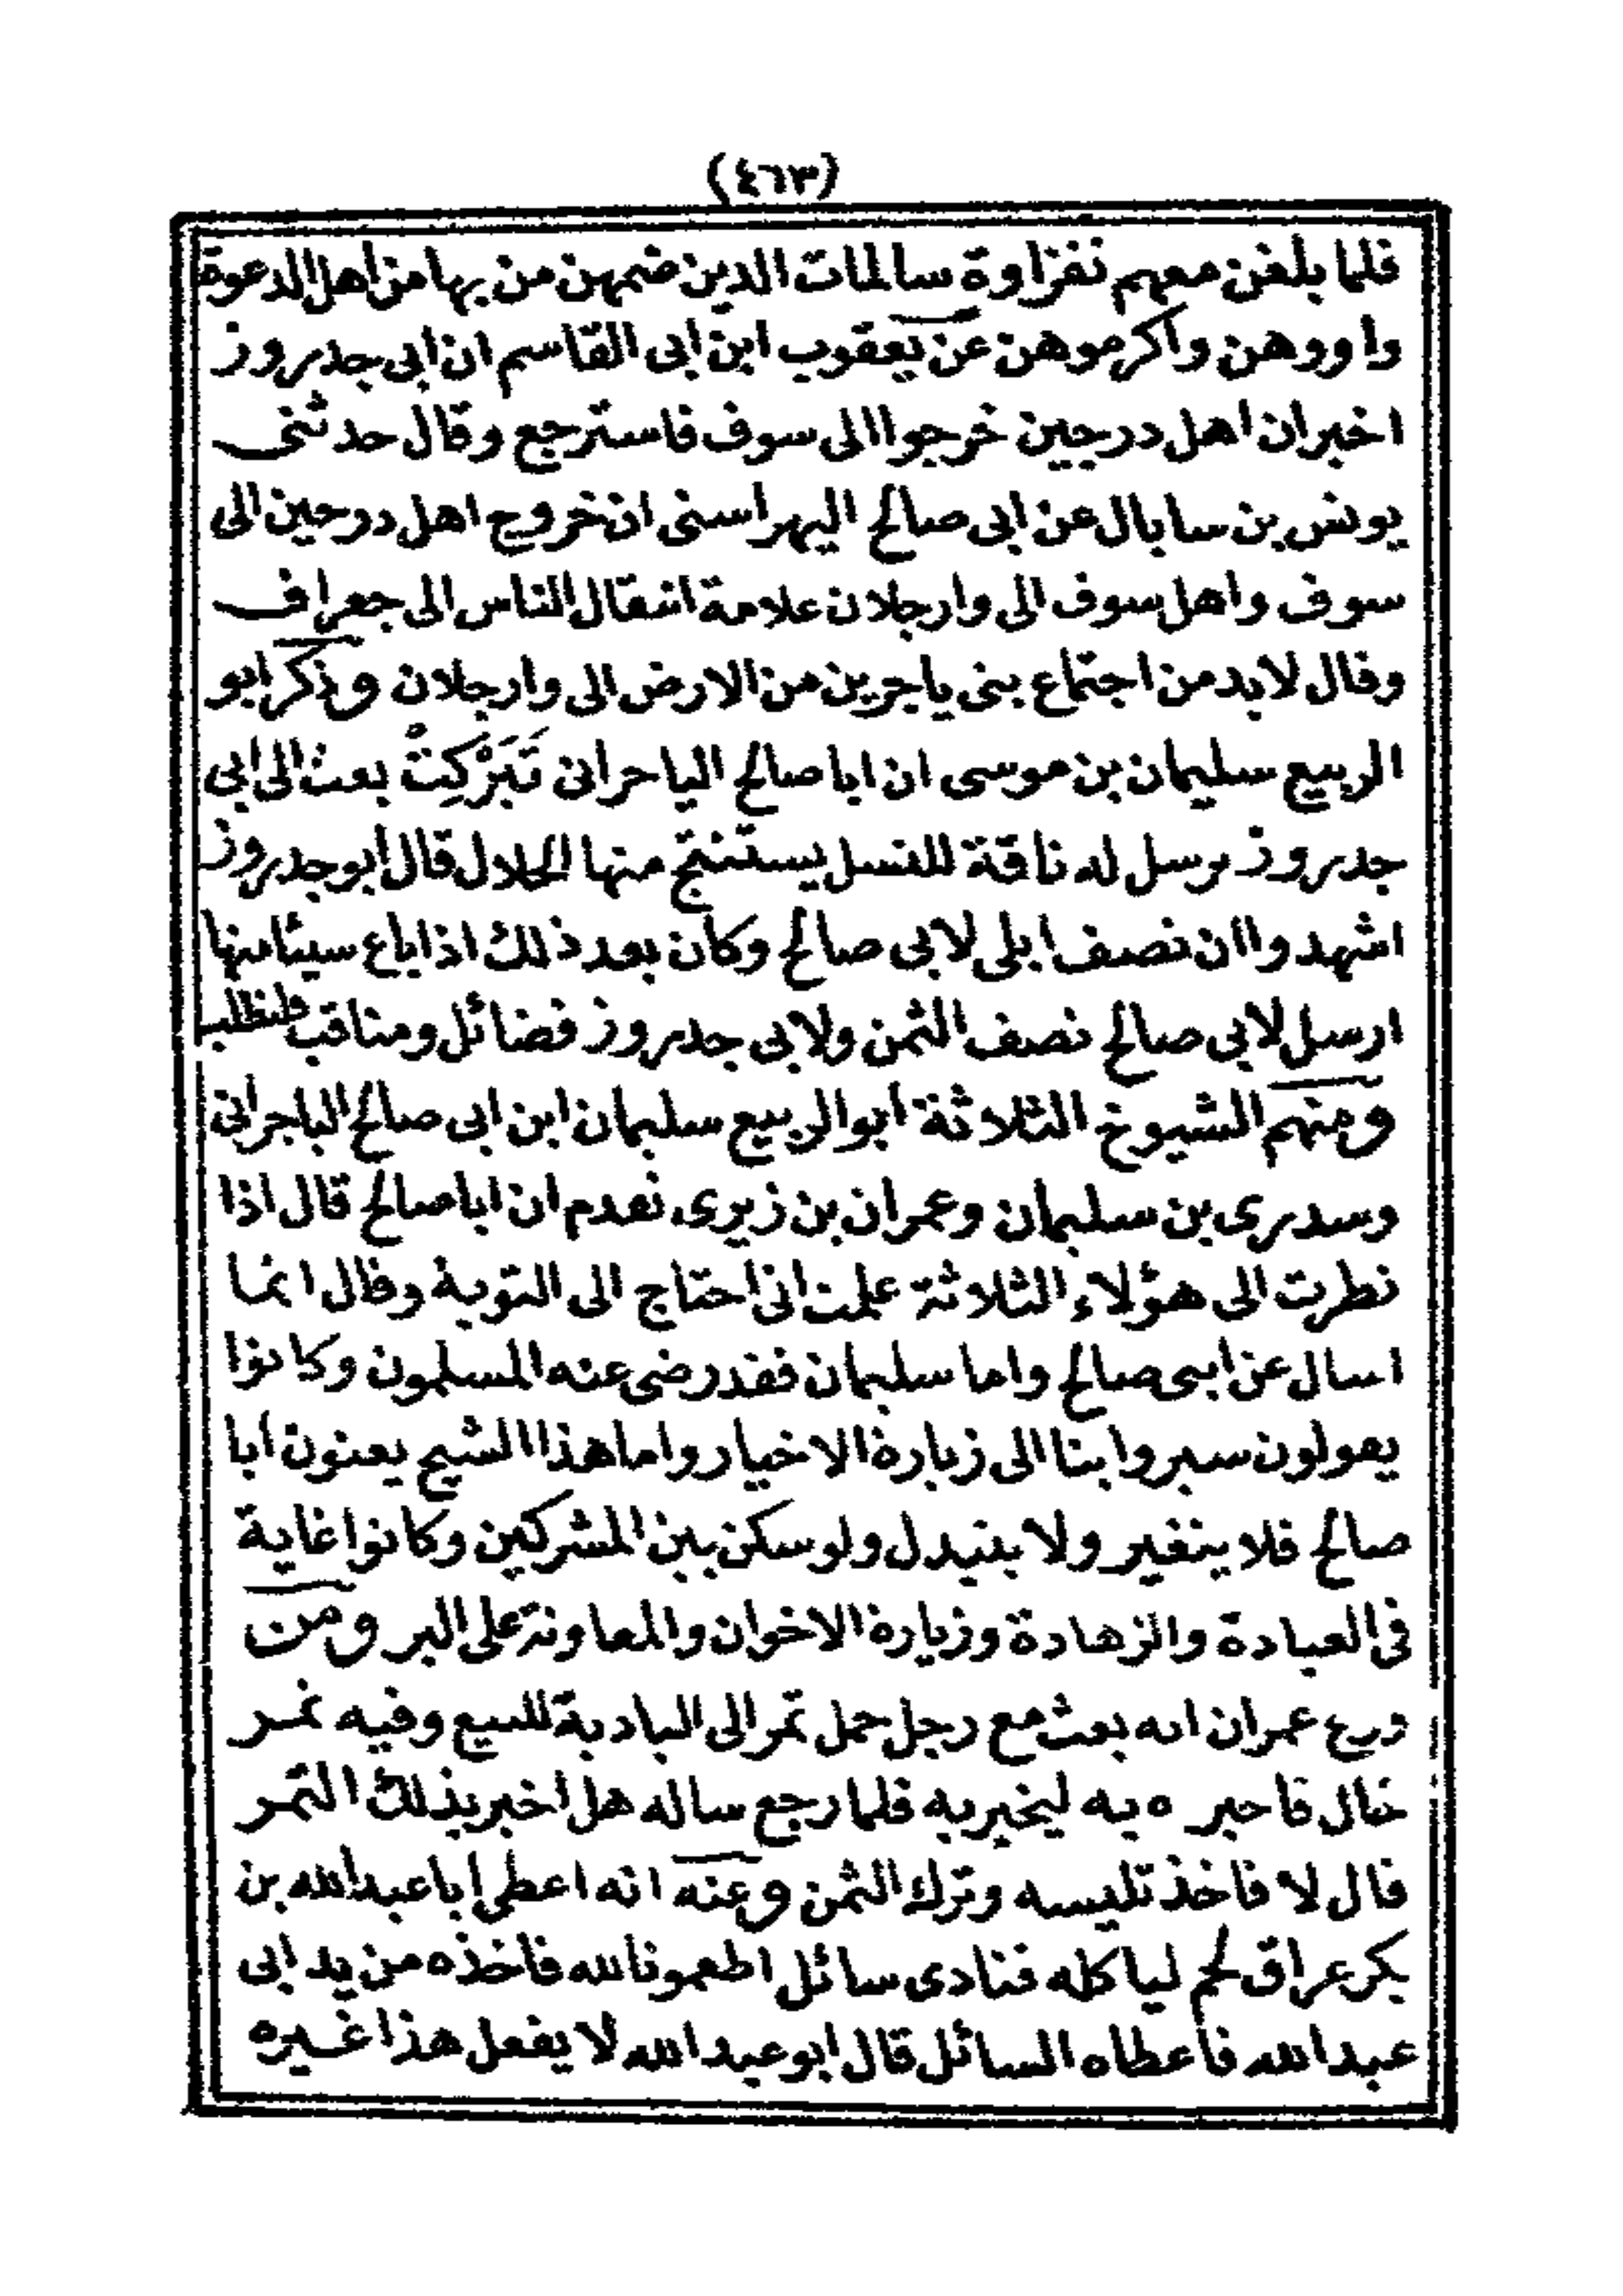 (٤٦٣)
فلما بلغن معهم نفزاوة سالمات الدين ضمهن من بها من اهل الدعوة
واووهن واكرموهن عن يعقوب ابن ابى القاسم ان ابى جدير وز
اخبر ان اهل درجين خرجوا الى سوف فاسترجع وقال حدثنى
يونس بن سابال عن ابى صالح اليهراسنى ان خروج اهل درجين الى
سوف واهل سوف الى وارجلان علامة انتقال الناس الى جعراف
وقال لابد من اجتماع بنى ياجرين من الارض الى وارجلان وذكر ابو
الربيع سليمان بن موسى ان ابا صالح الياجرانى تَبَرْكِتْ بعث الى ابى
جدير وز يرسل له ناقة للنسل يستنتج منها الحلال قال ابو جدير وز
اشهد وا ان نصف ابلى لابى صالح وكان بعد ذلك اذا باع سيئا منها
ارسل لابى صالح نصف الثمن ولابى جدير وز فضائل ومناقب
ومنهم الشيوخ الثلاثة ابو الربيع سليمان ابن ابى صالح الياجرانى
وسدرى بن سليمان وعمران بن زيرى تقدم ان ابا صالح قال اذا
نظرت الى هؤلاء الثلاثة علمت انى احتاج الى التوبة وقال انما
اسال عن ابى صالح واما سليمان فقد رضى عنه المسلمون وكانوا
يقولون سيروا بنا الى زيارة الاخيار واما هذا الشيخ يعنون ابا
صالح فلا يتغير ولا يتبدل ولو سكن بين المشركين وكانوا غاية
فى العبادة والزهادة وزيارة الاخوان والمعاونة على البر ومن
ورع عمران انه بعث مع رجل حمل تمر الى البادية للبيع وفيه تمر
خال فاخبر ه به ليخبر به فلما رجع ساله هل اخبر بذلك التمر
قال لا فاخذ تليسه وترك الثمن وعنه انه اعطى ابا عبد الله بن
بكر عراق لحم لياكله فنادى سائل اطعمونا لله فاخذه من يد ابى
عبد الله فاعطاه السائل قال ابو عبد الله لا يفعل هذا غيره